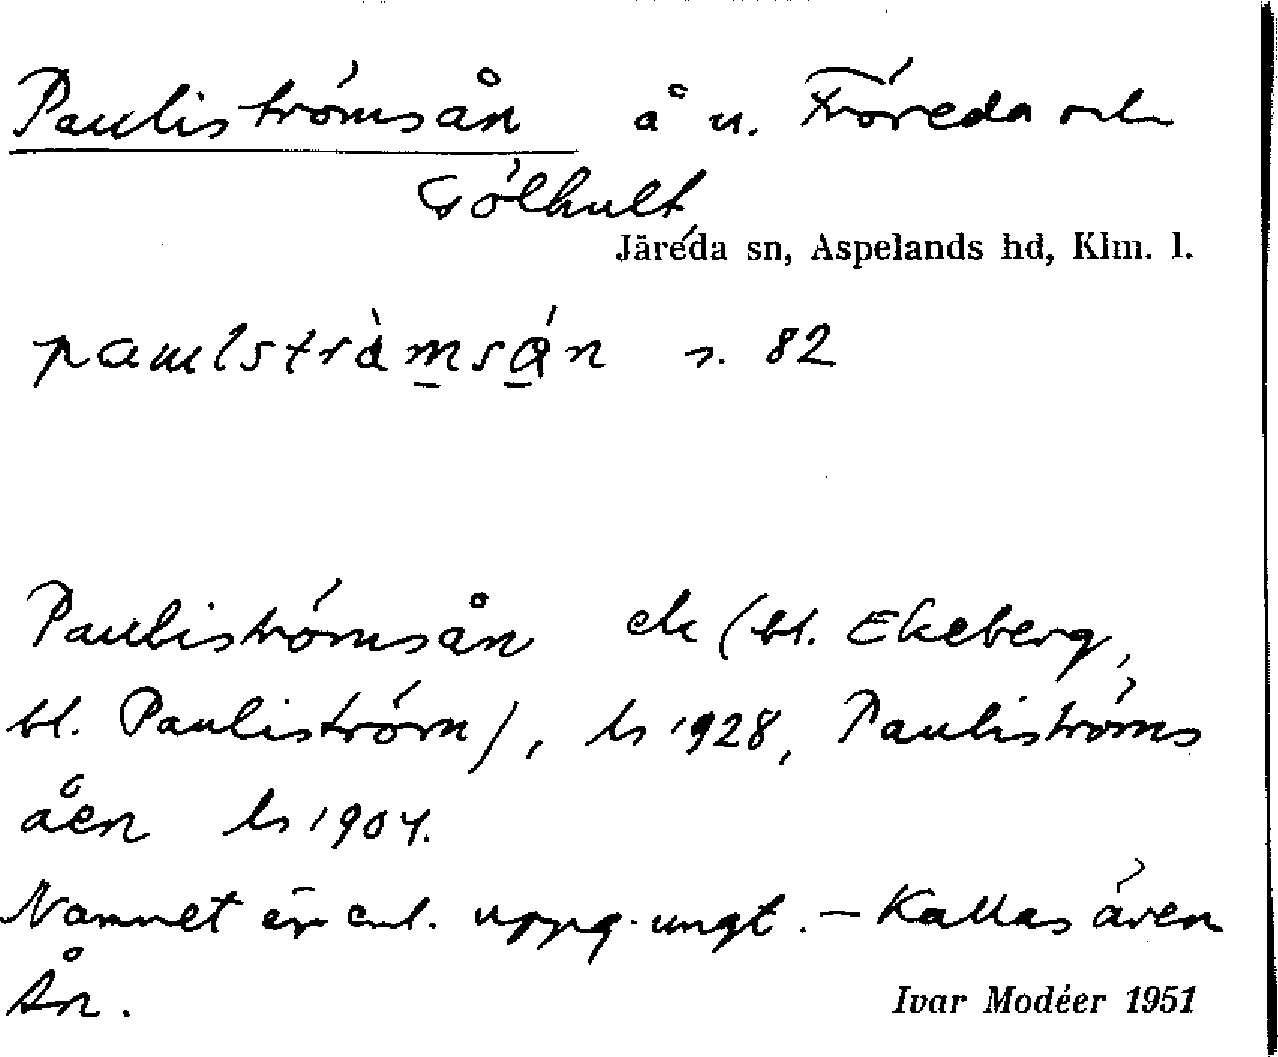 Pauliströmsån å u. Fröreda och
Gölhult
Järeda sn, Aspelands hd, Klm. l.
s. 82
Pauliströmsån ek (bl. Ekeberg,
bl. Pauliström), ls 1928, Pauliströms
åen ls 1904.
Namnet är enl. uppg. ungt. – Kallas även
Ån.
Ivar Modéer 1951